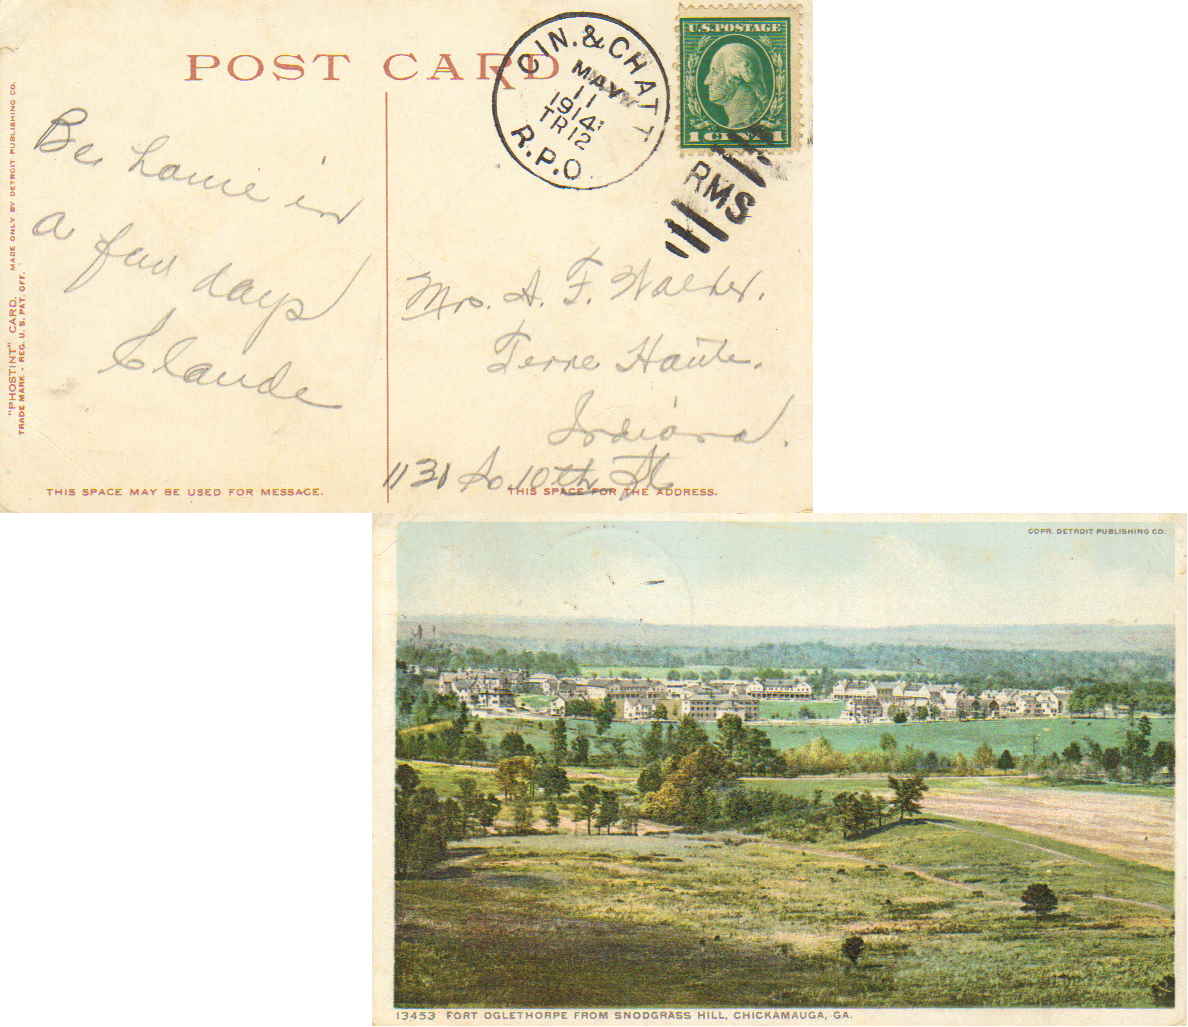 POST CARD
CIN. & CHATT
MAY
11
1914
TR12
R.P.O
U.S. POSTAGE
1 CENT 1
RMS
"PHOSTINT" CARD. MADE ONLY BY DETROIT PUBLISHING CO.
TRADE MARK - REG. U. S. PAT. OFF.
Be home in
a few days
Claude
Mrs. A. F. Walker.
Terre Haute.
Indiana.
1131 So 10th St
THIS SPACE MAY BE USED FOR MESSAGE.
THIS SPACE FOR THE ADDRESS.
COPR. DETROIT PUBLISHING CO.
13453 FORT OGLETHORPE FROM SNODGRASS HILL, CHICKAMAUGA, GA.